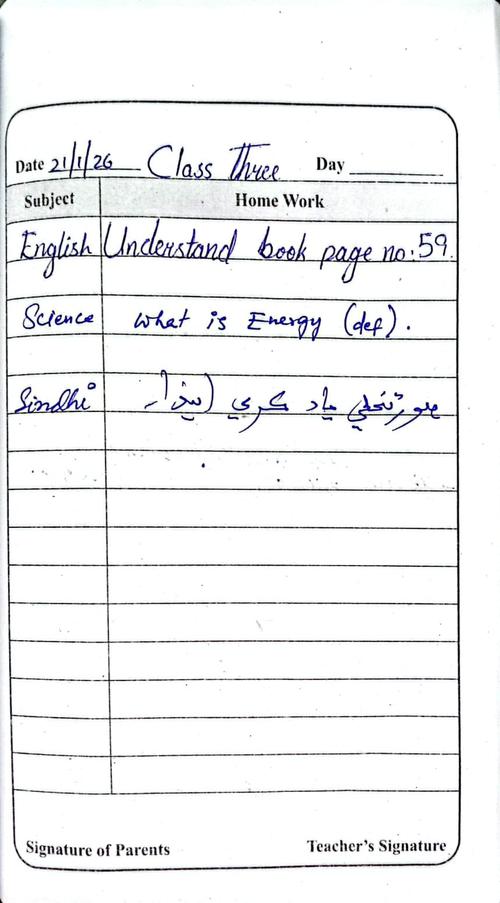 Date 21/1/26 Class Three Day
Subject Home Work
English Understand book page no: 59.
Science What is Energy (def).
Sindhi ياد ڪري
Signature of Parents Teacher's Signature